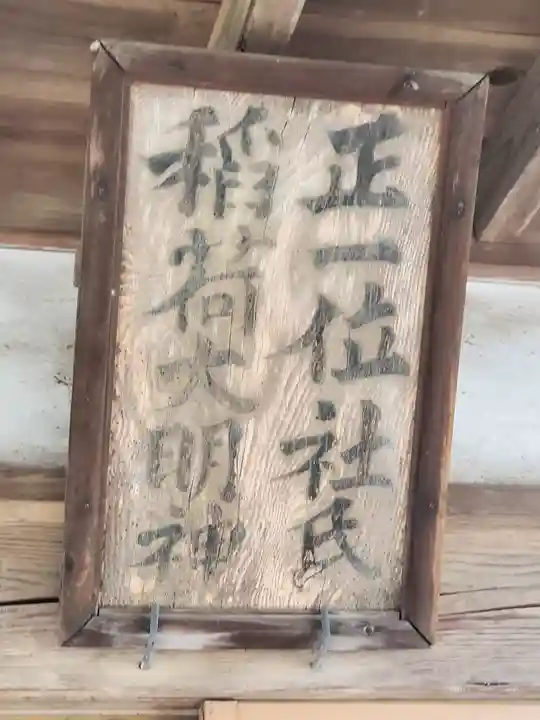 正一位社氏
稲荷大明神